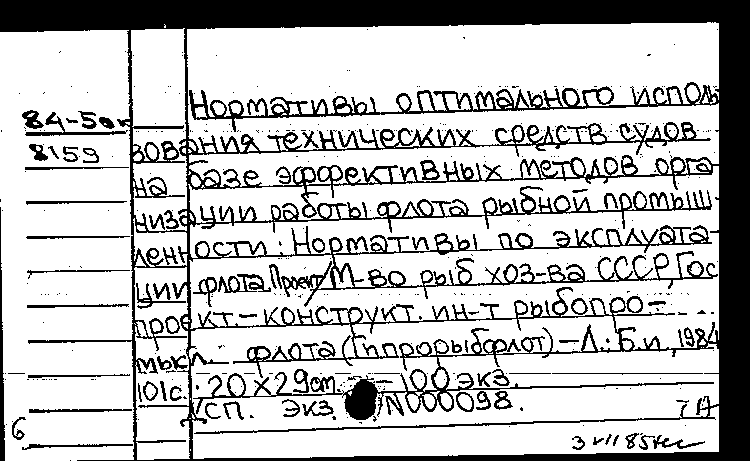 Нормативы оптимального исполь
84-5вк
зования технических средств судов
8159
на базе эффективных методов орга-
низации работы флота рыбной промыш-
ленности: Нормативы по эксплуата-
ции флота. Проект/М-во рыб хоз-ва СССР, Гос
проект.-конструкт. ин-т рыбопро-
мысл. флота (Гипрорыбфлот).-Л.: Б.и, 1984
101с. 20×29см. - 100 экз.
Исп. экз. N000098.
7А
6
3 VII 85